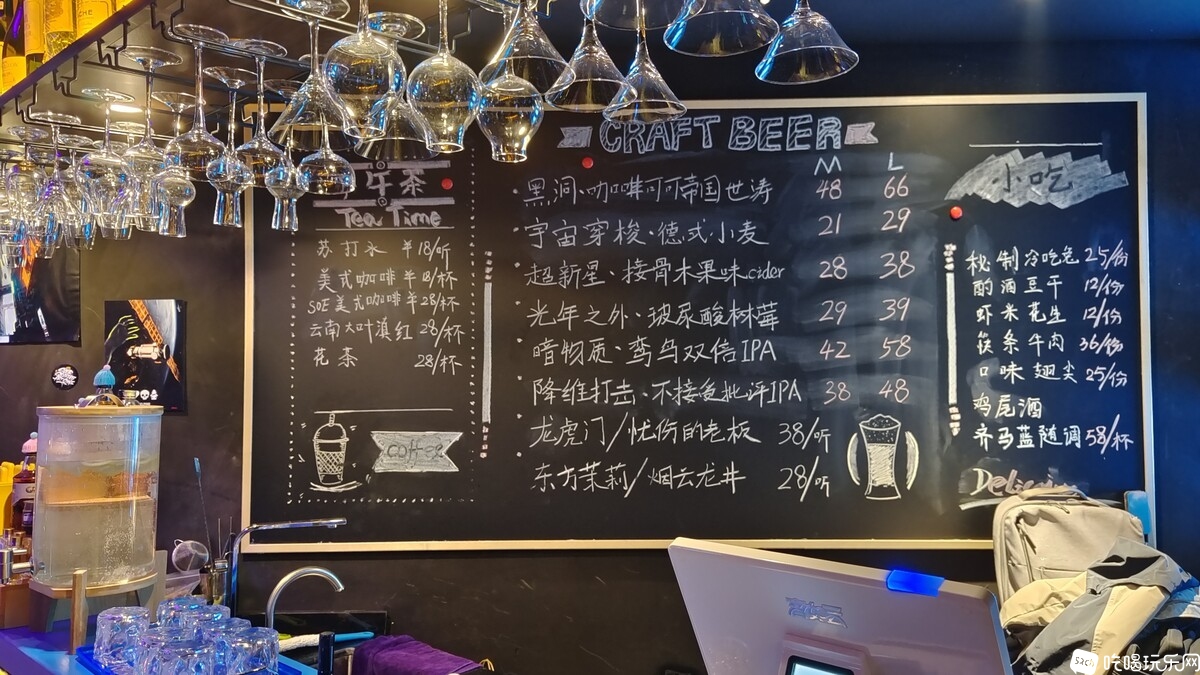 午茶
Tea Time
苏打水 ¥18/听
美式咖啡 ¥18/杯
SOE美式咖啡 ¥28/杯
云南大叶滇红 28/杯
花茶 28/杯
coffee
CRAFT BEER
M L
黑洞·咖啡可可帝国世涛 48 66
宇宙穿梭·德式小麦 21 29
超新星·接骨木果味cider 28 38
光年之外·玻尿酸树莓 29 39
暗物质·鸾鸟双倍IPA 42 58
降维打击·不接受批评IPA 38 48
龙虎门/忧伤的老板 38/听
东方茉莉/烟云龙井 28/听
小吃
秘制冷吃兔 25/份
酌酒豆干 12/份
虾米花生 12/份
筷条牛肉 36/份
口味翅尖 25/份
鸡尾酒
齐马蓝随调 58/杯
吃喝玩乐网